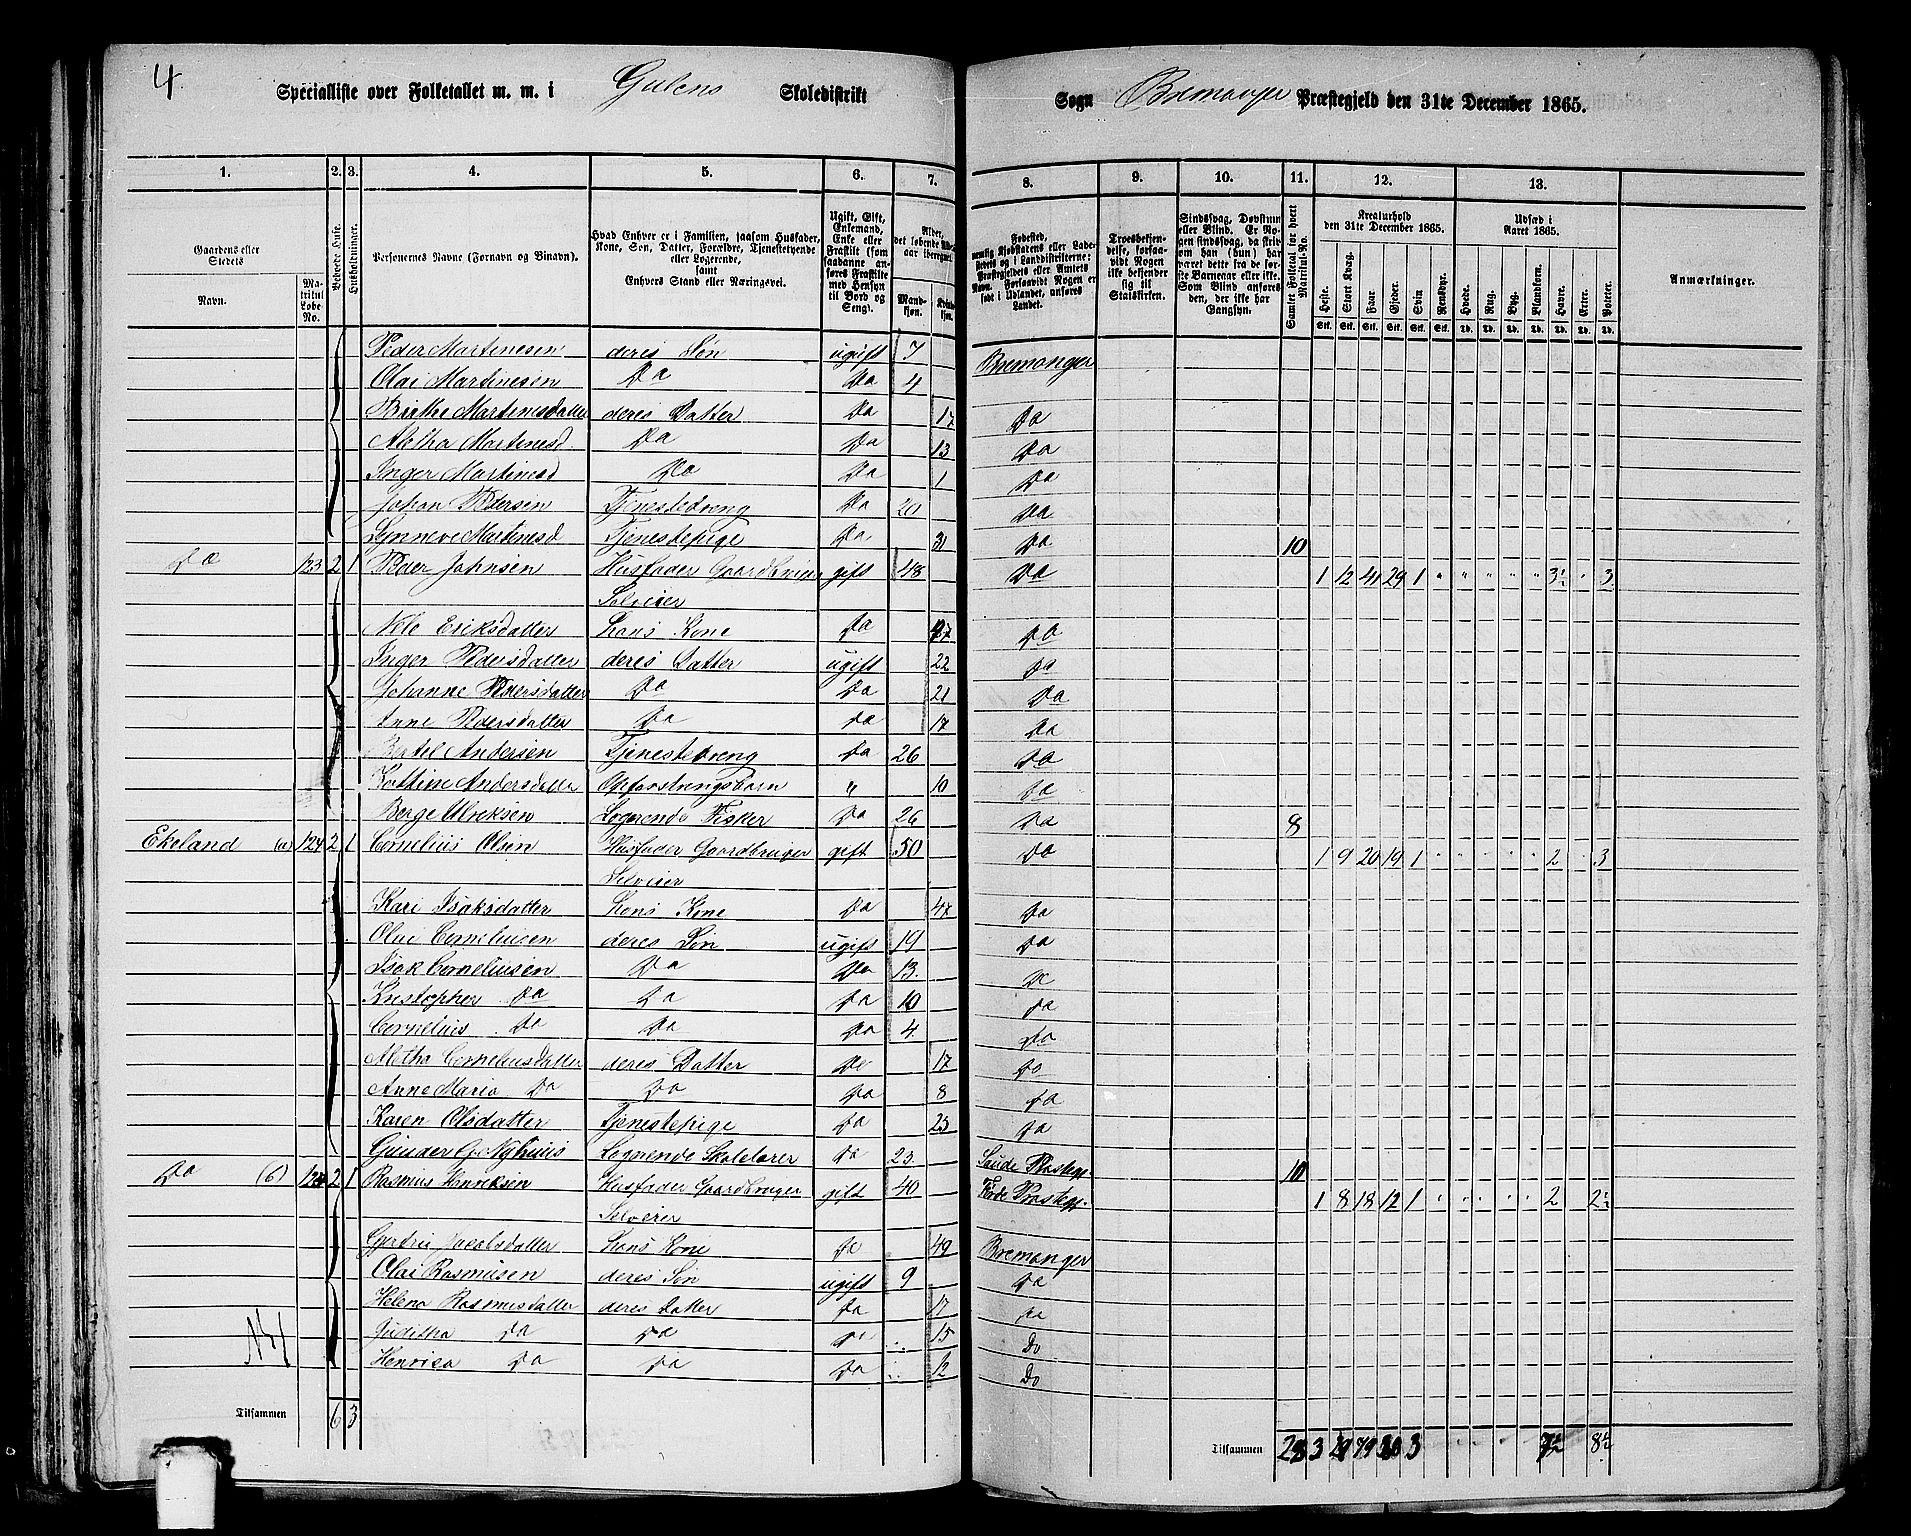 4
Specialliste over Folketallet m. m. i Gulens Skoledistrikt
Sogn Bremanger Præstegjeld den 31te December 1865.
1. 2. 3. 4. 5. 6. 7. 8. 9. 10. 11. 12. 13.
Gaardens eller Stedets
Navn.
Matrikul Løbe No.
Beboede Huse.
Huusholdninger.
Personernes Navne (Fornavn og Binavn).
Hvad Enhver er i Familien, saasom Husfader, Kone, Søn, Datter, Forældre, Tjenestetyende eller Logerende, samt Enhvers Stand eller Næringsvei.
Ugift, Gift, Enkemand, Enke eller Fraskilt (som saadanne anføres Fraskilte med Hensyn til Bord og Seng).
Mandkjøn.
Kvindekjøn.
Troesbekjendelse, forsaavidt Nogen ikke bekjender sig til Statskirken.
Samlet Folketal for hvert Matrikul-No.
Kreaturhold den 31te December 1865.
Udsæd i Aaret 1865.
Anmærkninger.
Heste. Stort Kvæg. Faar. Gjeder. Svin. Rensdyr. Hvede. Rug. Byg. Blandkorn. Havre. Erter. Poteter.
Peder Martinesen deres Søn ugift 7 Bremanger
Olai Martinesen Do Do 4
Birthe Martinesdatter deres Datter Do 17 Do
Metha Martinesd. Do Do 13 Do
Inger Martinesd Do Do 1 Do
Johan Pedersen Tjenestedreng Do 20 Do
Synneve Martinesd Tjenestepige Do 31 Do 10
Do 123 2 1 Peder Johnsen Husfader Gaardbruger gift 48 Do 1 12 41 29 1 3½ 3
Selveier
Nele Eriksdatter Hans Kone Do 47 Do
Inger Pedersdatter deres Datter ugift 22 Do
Johanne Pedersdatter Do Do 21 Do
Anne Pedersdatter Do Do 17 Do
Bertel Andersen Tjenestedreng Do 26 Do
Kattine Andersdatter Opfostringsbarn " 10 Do
Berge Ulreksen Logerende Fisker Do 26 Do 8
Ekeland (a) 124 2 1 Cornelius Olsen Husfader Gaardbruger gift 50 Do 1 9 20 19 1 2 3
Selveier
Kari Isaksdatter Hans Kone Do 47 Do
Olai Corneliusen deres Søn ugift 19 Do
Isak Corneliusen Do Do 13 Do
Kristopher Do Do Do 10 Do
Cornelius Do Do Do 4 Do
Metha Corneliusdatter deres Datter Do 17 Do
Anne Maria Do Do Do 8 Do
Karen Olsdatter Tjenestepige Do 25 Do
Gunder G. Nyhuus Logerende Skolelærer Do 23 Saude Præstegj. 10
Do (b) 124 2 1 Rasmus Henriksen Husfader Gaardbruger gift 40 Førde Præstegj. 1 8 18 12 1 2 2½
Selveier
Gjertru Jacobsdatter Hans Kone Do 49 Bremanger
Olai Rasmusen deres Søn ugift 9 Do
Helena Rasmusdatter deres Datter Do 17 Do
Juditha Do Do Do 15 Do
Henrica Do Do Do 12 Do
Tilsammen 6 3
Tilsammen 28 3 29 79 3 7½ 8½